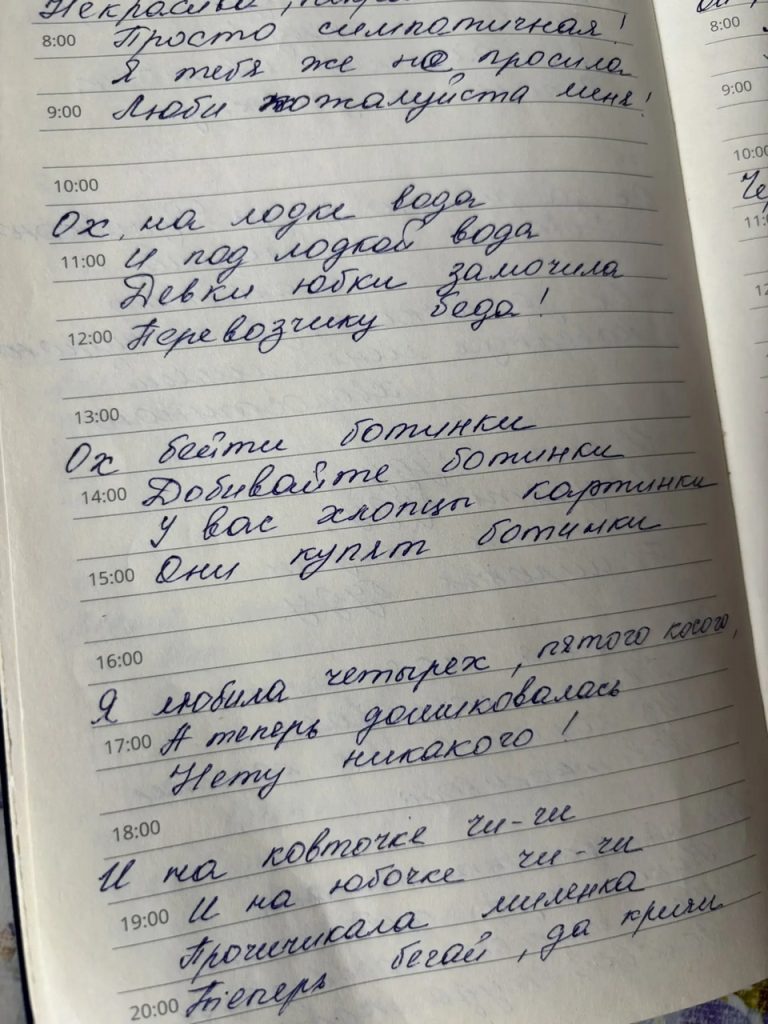 Некрасива,
8:00 Просто симпатичная!
Я тебя же не просила
9:00 Люби пожалуйста меня!
10:00
Ох, на лодке вода
11:00 И под лодкой вода
Девки юбки замочила
12:00 Перевозчику беда!
13:00
Ох бейти ботинки
14:00 Добивайте ботинки
У вас хлопцы картинки
15:00 Они купят ботинки
16:00
Я любила четырех, пятого косого,
17:00 А теперь дошиковалась
Нету никакого!
18:00
И на ковточке чи-чи
19:00 И на юбочке чи-чи
Прочичикала миленка
20:00 Теперь бегай, да кричи
8:00
9:00
10:00